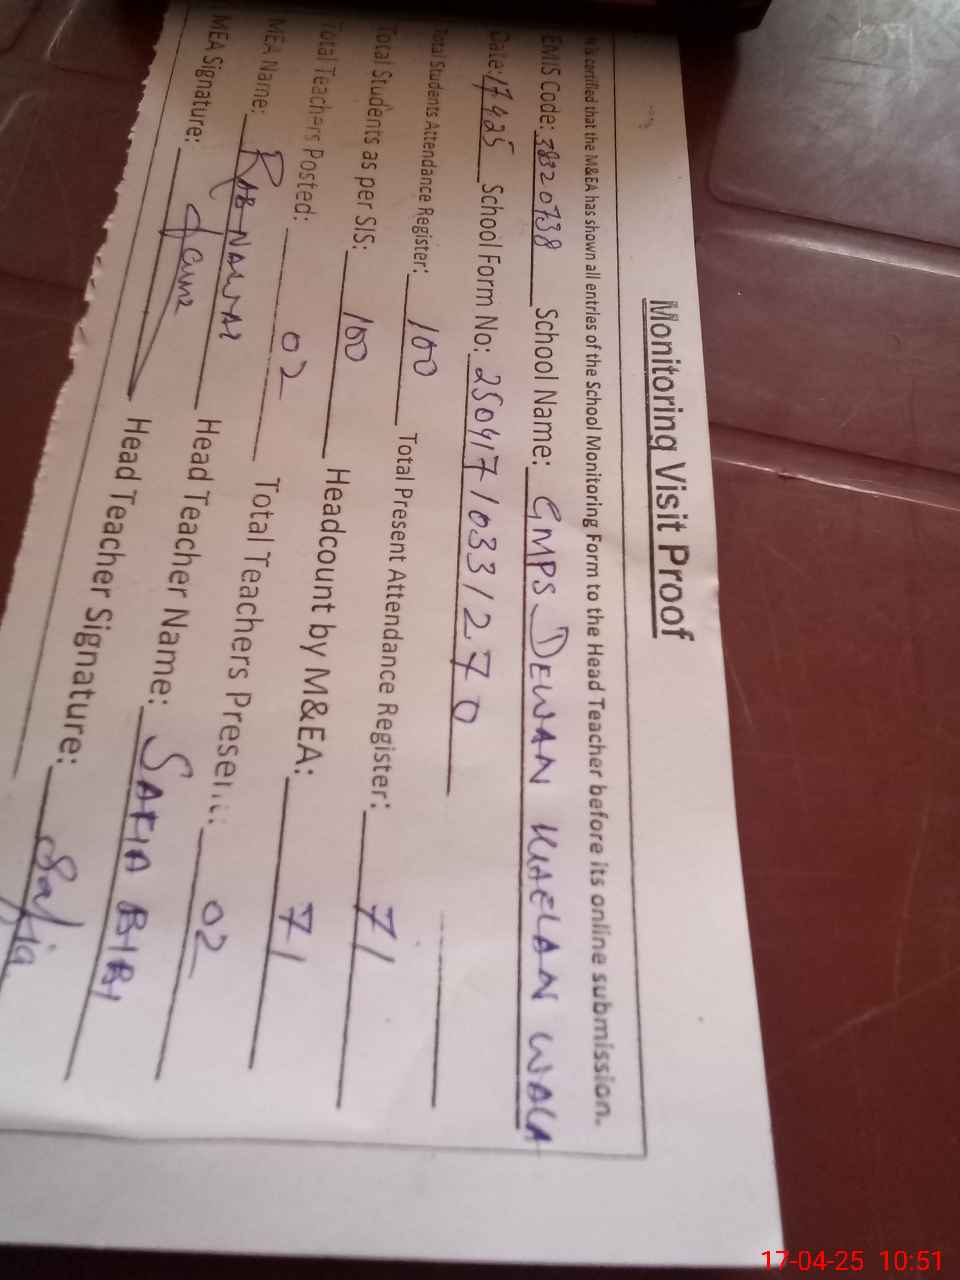 Monitoring Visit Proof
It is certified that the M&EA has shown all entries of the School Monitoring Form to the Head Teacher before its online submission.
EMIS Code: 38320738 School Name: GMPS DEWAN KHAELAN WALA
Date: 17.4.25 School Form No: 250417/033/270
Total Students Attendance Register: 100 Total Present Attendance Register: 71
Total Students as per SIS: 100 Headcount by M&EA: 71
Total Teachers Posted: 02 Total Teachers Present: 02
MEA Name: RAB NAWAZ Head Teacher Name: SAFIA BIBI
MEA Signature: Head Teacher Signature: Safia
17-04-25 10:51